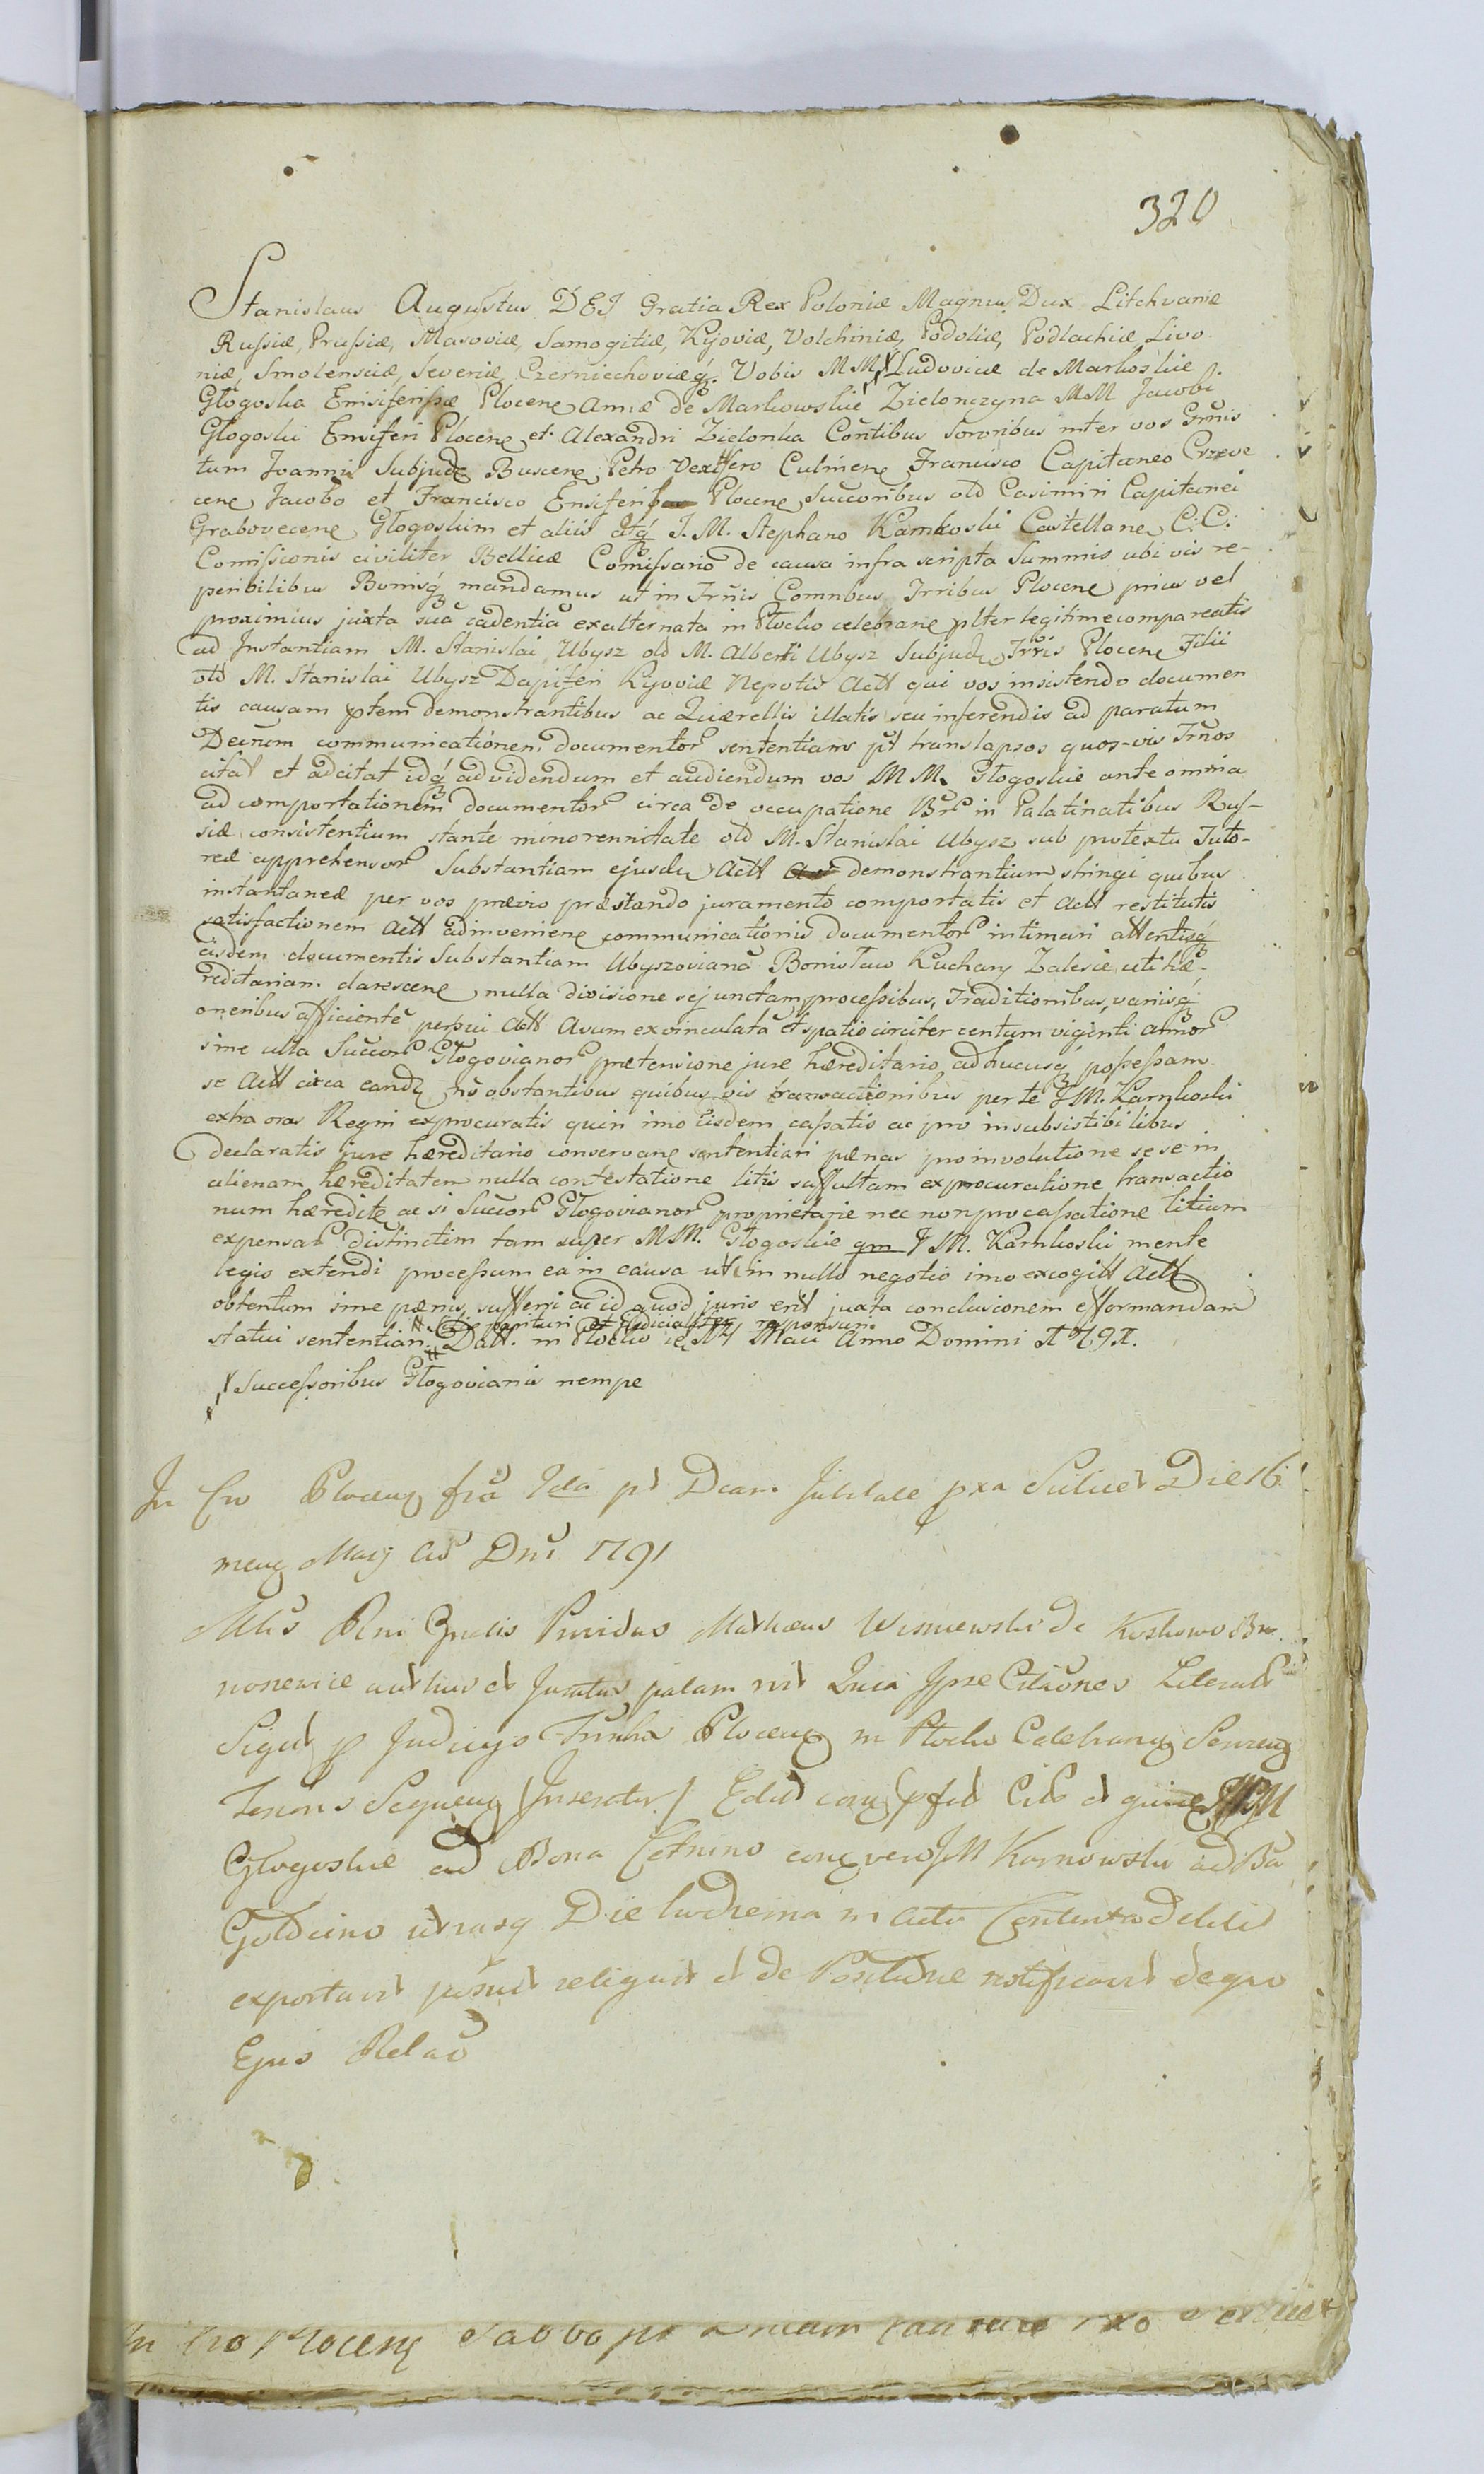 320
Stanislaus Augustus DEI Gratia Rex Poloniæ Magnus Dux Litchvaniæ
Russiæ, Prussiæ, Masoviæ, Samogitiæ, Kijoviæ, Volchiniæ, Podoliæ, Podlachiæ Livo
niæ, Smolensciæ, Severiæ Czerniechoviæq. Vobis MM Ludovicæ de Markoskie
Głogoska Ensiferissæ Plocen Annæ de Markowskie Zielonczyna MM Jacobi
Głogoski Ensiferi Plocen et Alexandri Zielonka Contibus Sororibus inter vos Grnis
tum Joannis Subjudæ Buscen Petro Vexifero Culmen Francisco Capitaneo Crzeve
cen Jacobo et Francisco Ensiferi Plocen Succoribus old Casimiri Capitanei
Grabovecen Głogoskim et aliis atq J. M. Stephano Karnkoski Castellane C: C:
Comissionis civiliter Bellicæ Comissario de causa infra scripta Summis ubi vis re-
peribilibus Bonisq mandamus ut in Trnis Comnbus Trribus Plocen prius vel
proximius juxta suã cadentiã exalternata in Płocko celebrane plter legitime compareatis
ad Instantiam M. Stanislai Ubysz old M. Alberti Ubysz Subjudi Trris Plocen Filii
old M. Stanislai Ubysz Dapiferi Kijoviæ Nepotis Actt qui vos insistendo documen
tis causam ptem demonstrantibus ac Quærellis illatis seu inferendis ad paratum
Decnem communicationem documentor sententiam pt translapsos quos-vis Trnos
citat et adcitat idq ad videndum et audiendum vos MM. Głogoskie ante omnia
ad comportationem documentor circa de occupatione Br in Palatinatibus Rus-
siæ consistentium stante minorennitate old M. Stanislai Ubysz sub protextu Tuto-
reæ apprehensor Substantiam ejusdu Actt demonstrantium stringi quibus
instantaneæ per vos prævio præstando juramento comportatis et Actt restitutis
satisfactionem Actt adinvenien communicationis documentor intimari attentisq
eisdem documentis Substantiam Ubyszovianã Bonisław Kuchary Zalesie uti hæ-
reditariam darescen nulla divisione sejunctam processibus, Traditionibus, variisq
oneribus afficientẽ persui Actt Avum exvinculatã et spatio circiter centum viginti annor
sine ulla Succor Głogovianor prætensione jure hæreditario ad hucusq possessam
se Actt circa eandẽ nõ obstantibus quibus vis transactionibus per te J M. Karnkoski
extra oras Regni exprocuratis quin imo Eisdem cassatis ac pro insubsistibilibus
declaratis jure hæreditario conservan sententiari pænas pro involutione se se in
alienam hæreditatem nulla contestatione litis suffultam exprocuratione transactio
num hæredite ac si Succor Głogovianor proprietarie nec non pro cassatione litium
expensar distinctim tam super MM. Głogoskie qm J M. Karnkoski mente
legis extendi processum ea in causa uti in nullo negotio imo excogitt Actt
obtentum sine pænis sufferri ac id quod juris erit juxta conclusionem efformandam
parituri et judicialiter responsuri
statui sententiari. Datt. in Płocko Maii Anno Domini 1791.
Successoribus Głogovianis nempe
In Cro Plocen fra pt Dcam Jubilate pxa Scilicet Die 16
mens Maij Ao Dni 1791
Mtis Rni Gnalis Prvidus Mathæus Wisniewski de Koskowo
et Juratus palam rit Quia Ipse Citaones Literales
Sigit p Judicijs Plocen in Płocko Celebrans
Tenoris Sequens /Inseratur/ Edit MM
Głogoskie ad Bona Cetnino vero JM Karnowski ad Ba
Goldcino utrasq Die hodierna in acto Contenta
exportavit posuit reliquit et de Positione notificavit de quo
Ejus Relaõ
In Cro Plocen Sabbo